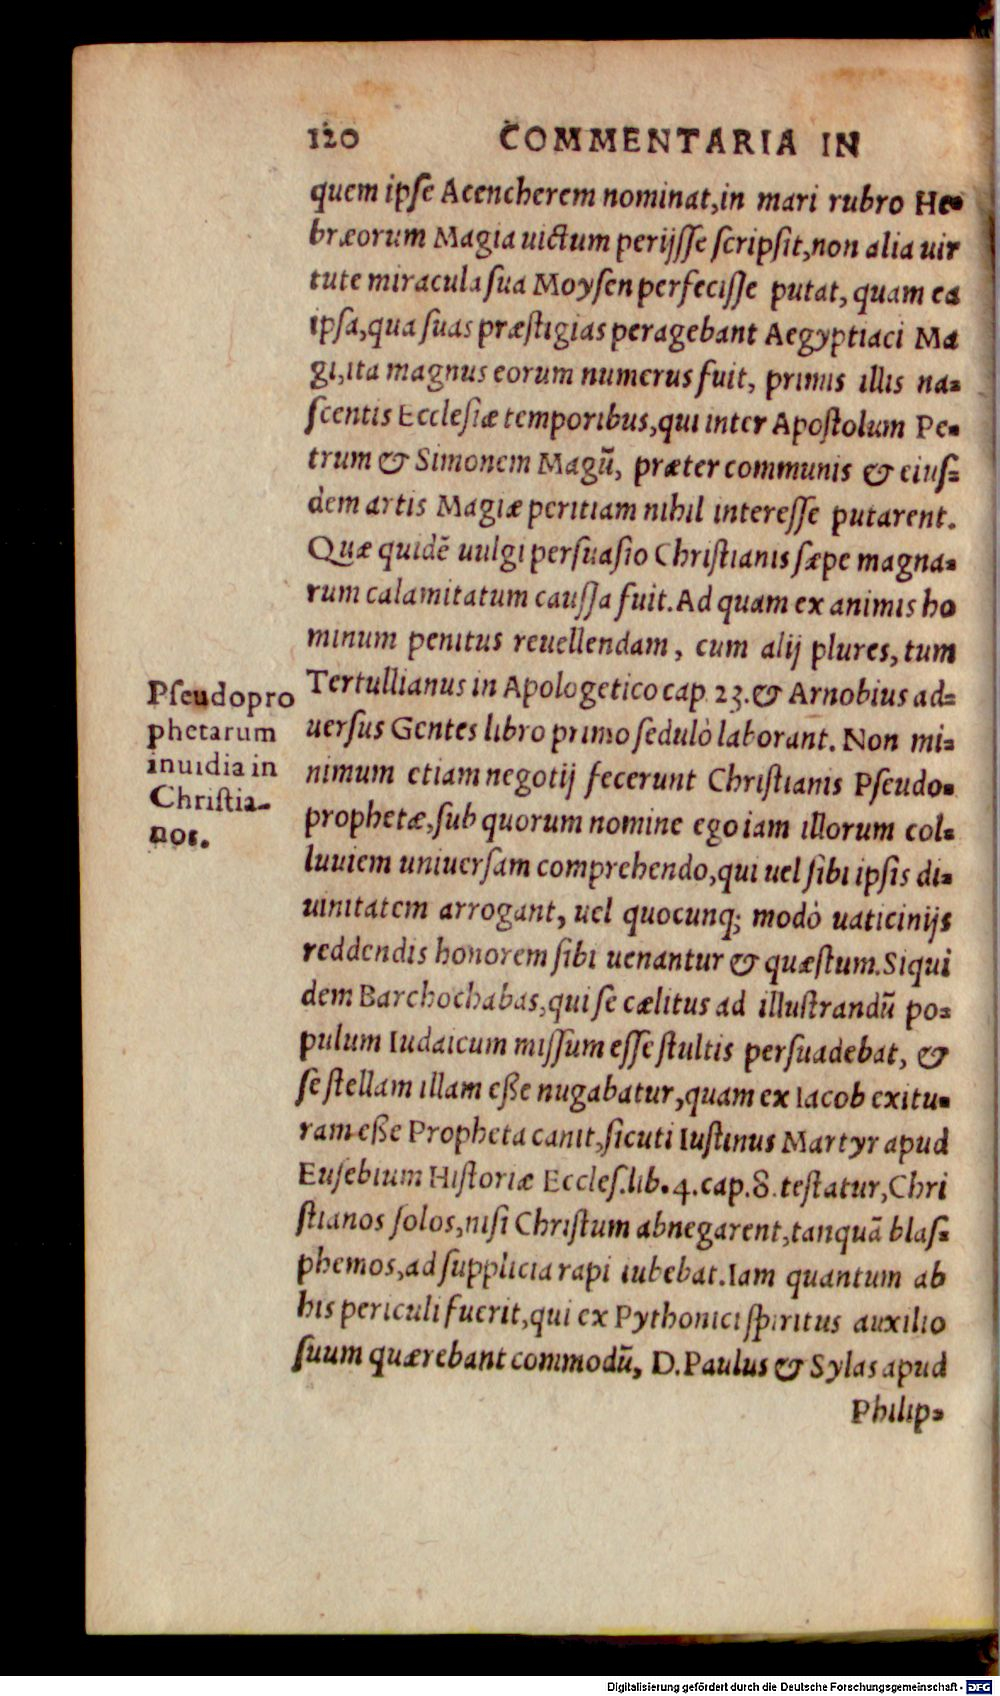 120 COMMENTARIA IN
quem ipſe Acencherem nominat,in mari rubro He=
bræorum Magia uictum perijſſe ſcripſit,non alia uir
tute miracula ſua Moyſen perfeciſſe putat, quam ea
ipſa,qua ſuas præſtigias peragebant Aegyptiaci Ma
gi,ita magnus eorum numerus fuit, primis illis na=
ſcentis Eccleſiæ temporibus,qui inter Apoſtolum Pe=
trum & Simonem Magũ, præter communis & eiuſ=
dem artis Magiæ peritiam nihil intereſſe putarent.
Quæ quidẽ uulgi perſuaſio Chriſtianis ſæpe magna=
rum calamitatum cauſſa fuit. Ad quam ex animis ho
minum penitus reuellendam, cum alij plures, tum
Tertullianus in Apologetico cap. 23. & Arnobius ad=
uerſus Gentes libro primo ſedulò laborant. Non mi=
nimum etiam negotij fecerunt Chriſtianis Pſeudo=
prophetæ,ſub quorum nomine ego iam illorum col=
luuiem uniuerſam comprehendo,qui uel ſibi ipſis di=
uinitatem arrogant, uel quocunq; modò uaticinijs
reddendis honorem ſibi uenantur & quæſtum. Siqui
dem Barchochabas,qui ſe cælitus ad illuſtrandũ po=
pulum Iudaicum miſſum eſſe ſtultis perſuadebat, &
ſe ſtellam illam eße nugabatur,quam ex Iacob exitu=
ram eße Propheta canit,ſicuti Iuſtinus Martyr apud
Euſebium Hiſtoriæ Eccleſ.lib.4.cap.8.teſtatur,Chri
ſtianos ſolos,niſi Chriſtum abnegarent,tanquã blaſ=
phemos,ad ſupplicia rapi iubebat. Iam quantum ab
his periculi fuerit,qui ex Pythonici ſpiritus auxilio
ſuum quærebant commodũ, D. Paulus & Sylas apud
Philip=
Pſeudopro
phetarum
inuidia in
Chriſtia-
nos.
Digitalisierung gefördert durch die Deutsche Forschungsgemeinschaft - DFG